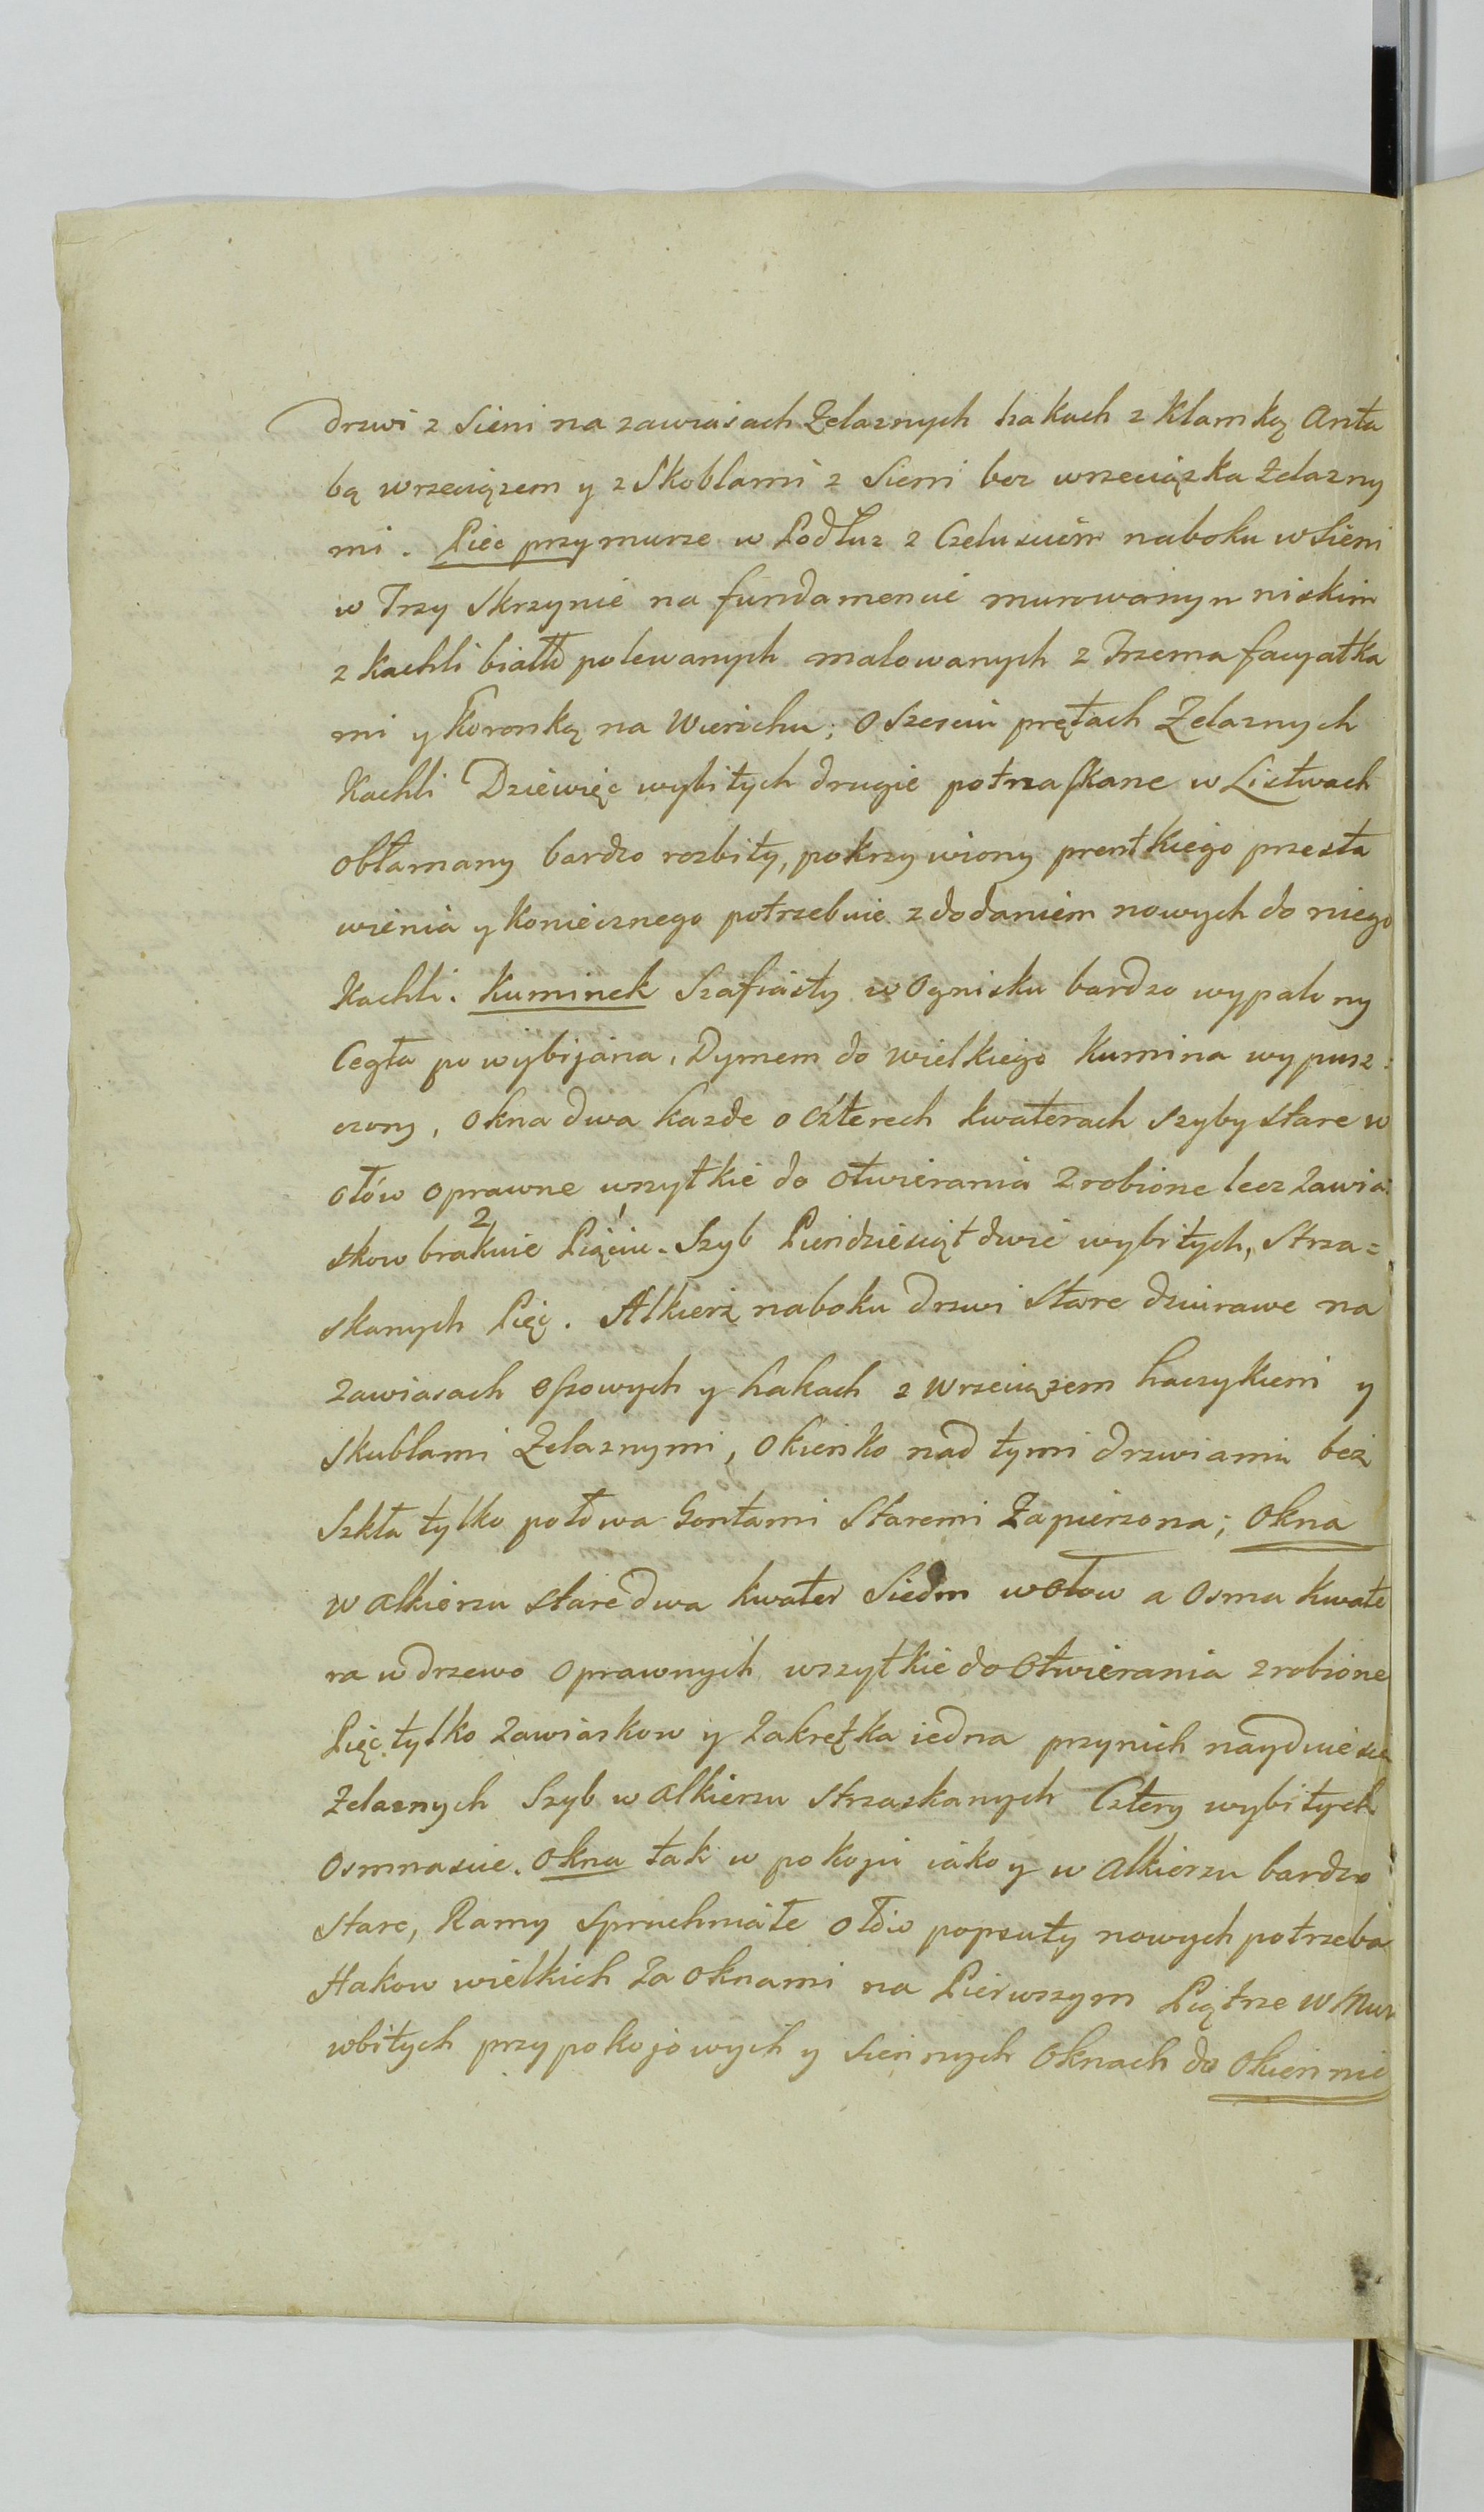 drzwi z Sieni na zawiasach Żelaznych hakach z Klamką Anta
bą wrzeciązem y z Skoblami z Sieni bez wrzeciązka żelazny
mi. Piec przy murze w Podłuz z Czeluściem naboku w Sieni
w Trzy Skrzynie na fundamencie murowanym niskim
z kachli biało polewanych malowanych z Trzema facyatka
mi y Koronką na Wierzchu; o Sześciu prętach Żelaznych
Kachli Dziewięc wybitych drugie potrzaskane w Listwach
obłamany bardzo rozbity, pokrzywiony prentkiego przesta
wienia y Koniecznego potrzebuie z dodaniem nowych do niego
Kachli. Kuminek Szafiasty w Ognisku bardzo wypalony
Cegła powybijana, Dymem do wielkiego Kumina wypusz:
czony, okna dwa kazde o czterech kwaterach szyby stare w
ołów oprawne wszytkie do otwierania zrobione lecz zawia:
skow brakuie 2 Pięciu. 1 Szyb Piendziesiąt dwie wybitych, Strza=
skanych Pięc. Alkierz naboku drzwi Stare dziurawe na
zawiasach essowych y hakach z wrzeciązem haczykiem y
Skublami Żelaznymi, Okienko nad tymi drzwiami bez
Szkła tylko połowa Gontami Staremi Zapierzona; Okna
w alkierzu stare dwa kwater Siedm w ołow a osma kwate
ra w drzewo oprawnych wszytkie do otwierania zrobione
Pięc tylko zawiaskow y zakrętka iedna przynich nayduie się
żelaznych Szyb w alkierzu strzaskanych Cztery wybitych
osmnaście. Okna tak w pokoju iako y w alkierzu bardzo
stare, Ramy Spruchniałe ołów popsuty nowych potrzeba
Hakow wielkich za oknami na Pierwszym Piątrze w Mur
wbitych przypokojowych y siennych oknach do Okiennic